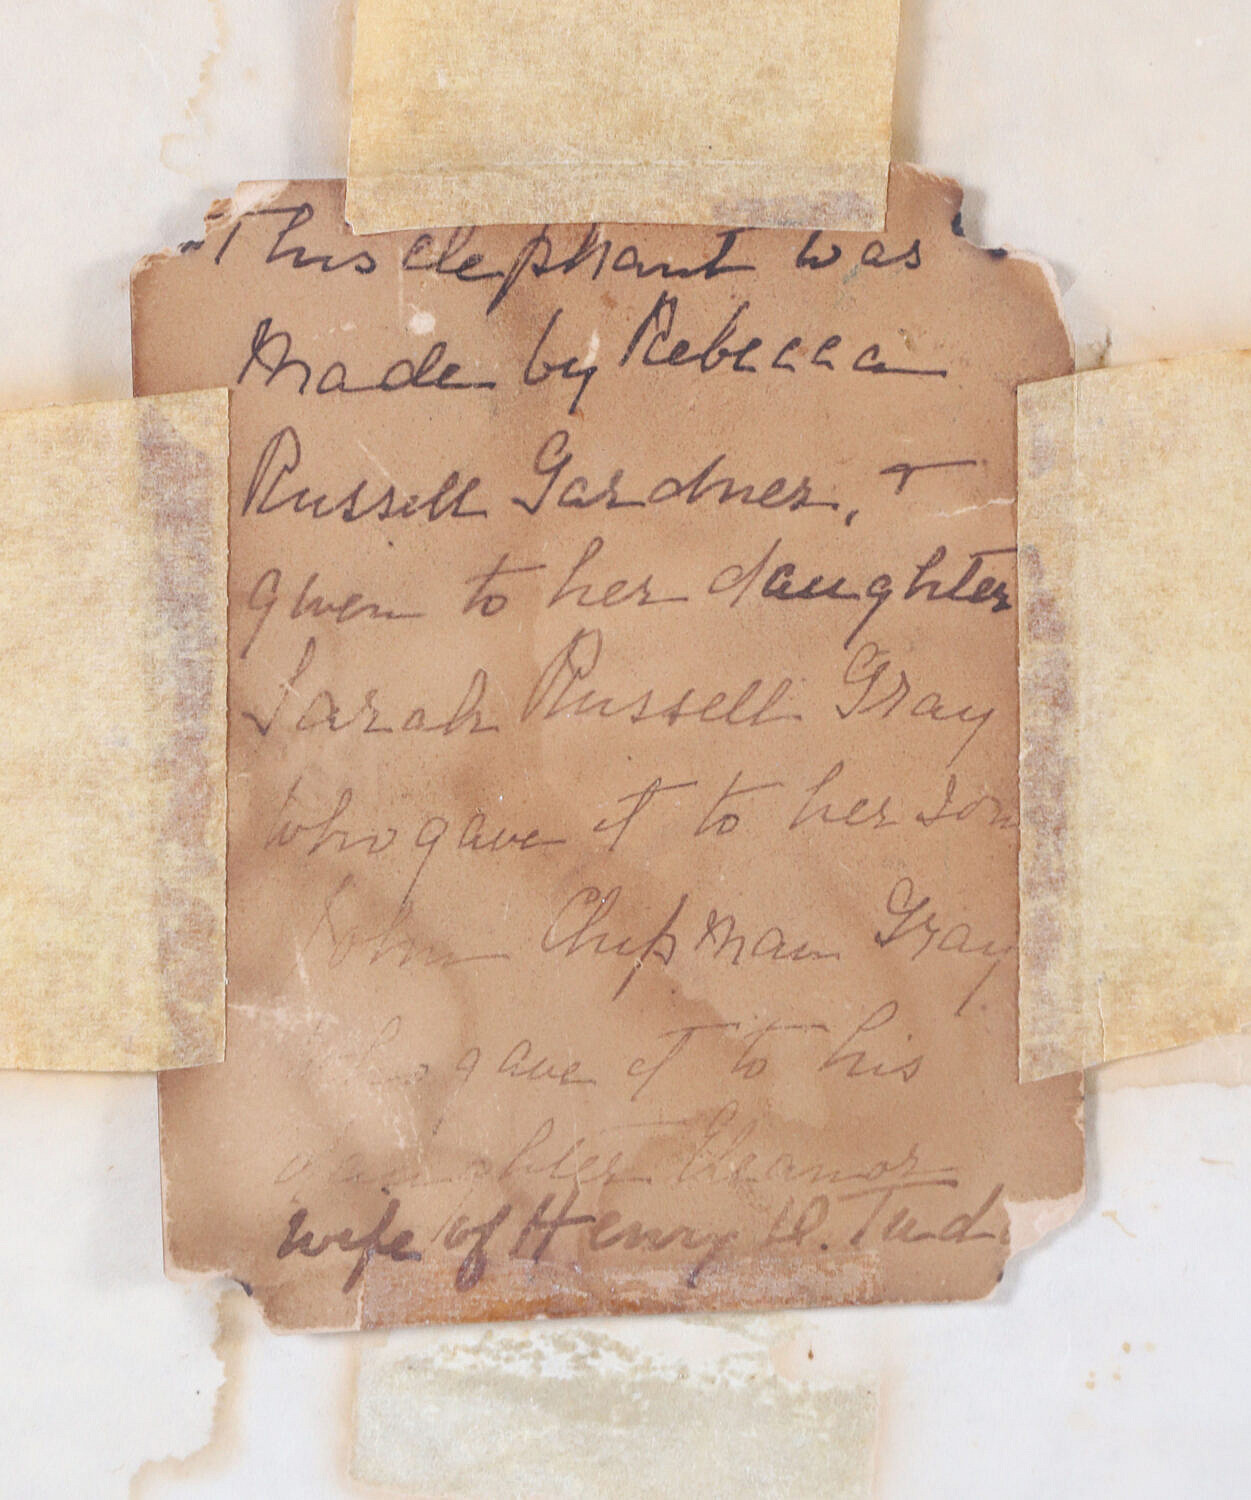 This elephant was
Made by Rebecca
Russell Gardner, +
given to her daughter
Sarah Russell Gray
who gave it to her son
John Chipman Gray
who gave it to his
daughter Eleanor
wife of Henry D. Tud